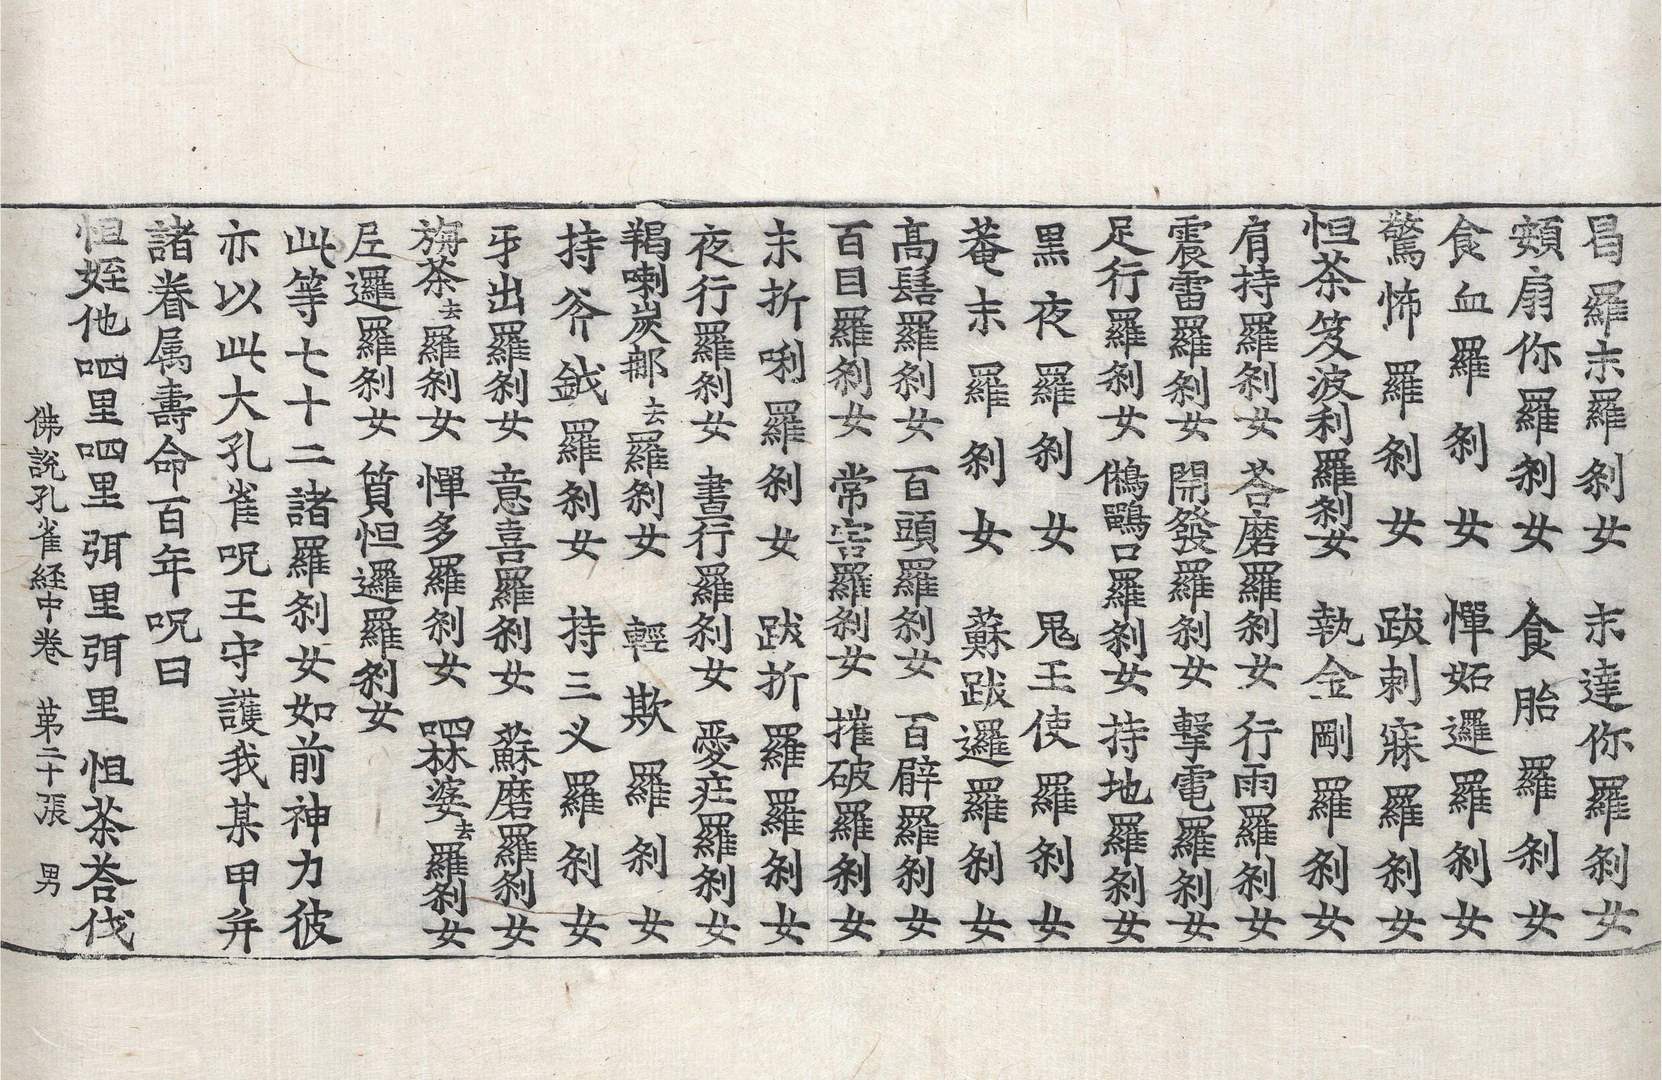 曷羅末羅刹女　末達你羅刹女
頞扇你羅刹女　食胎羅刹女
食血羅刹女　憚妬邏羅刹女
驚怖羅刹女　跋刺寐羅刹女
怛茶笈波利羅刹女　執金剛羅刹女
肩持羅刹女　荅磨羅刹女　行雨羅刹女
震雷羅刹女　開發羅刹女　擊電羅刹女
足行羅刹女　鵂鶹口羅刹女　持地羅刹女
黒夜羅刹女　鬼王使羅刹女
菴末羅刹女　蘇跋邏羅刹女
髙髻羅刹女　百頭羅刹女　百臂羅刹女
百目羅刹女　常害羅刹女　摧破羅刹女
末折唎羅刹女　跋折羅羅刹女
夜行羅刹女　晝行羅刹女　愛疰羅刹女
羯喇炭鄯去羅刹女　輕欺羅刹女
持斧鉞羅刹女　持三义羅刹女
牙出羅刹女　意喜羅刹女　蘇磨羅刹女
旃茶去羅刹女　憚多羅刹女　婆去羅刹女
邏羅刹女　質怛邏羅刹女
此等七十二諸羅刹女如前神力彼
亦以此大孔雀呪王守護我某甲并
諸眷属壽命百年呪曰
怛姪他呬里呬里弭里弭里怛茶荅伐
佛說孔雀経中卷　苐二十張　男